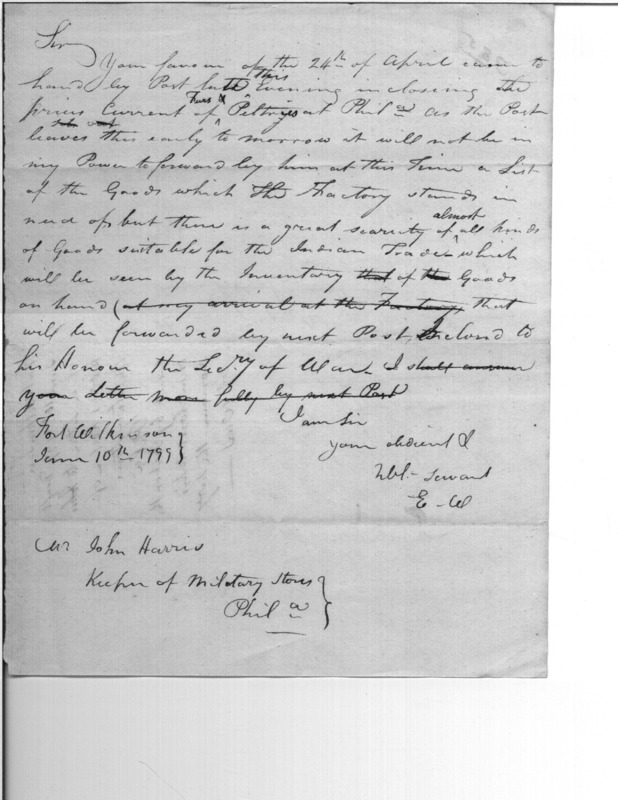 Sir
Your favour of the 24th of April came to
hand by Post late This Evening inclosing the
prices Current of Furs & Peltryes at Phil a as the Post
leaves this early to morrow it will not be in
my Power to forward by him at this Time a List
of the Goods which The Factory stands in
need of, but there is a great scarcity of almost all kinds
of Goods suitable for the Indian Trade which
will be seen by the Inventory that of the Goods
on hand (at my arrival at the Factory, that
will be forwarded by next Post, Inclosed to
his Honour the Secry of War. I shall answer
your Letter more fully by next Post
I am Sir
your obedient &
Hbl. Servant
E - W
Fort Wilkinson
June 10th 1799
Mr John Harris
Keeper of Military Stores
Phil a